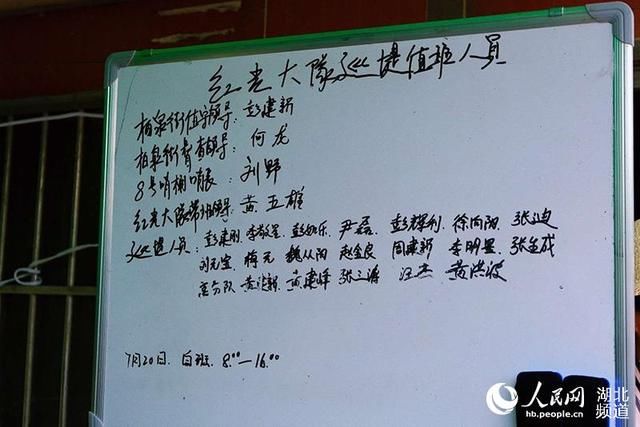 红光大队巡堤值班人员
柏泉街值守领导：彭建新
柏泉街督查领导：何龙
8号哨棚哨长：刘野
红光大队带班领导：黄五雄
巡堤人员：彭建刚 李敬星 彭如乐 尹磊 彭辉利 徐向阳 张迪
刘元宝 梅元 魏从阳 赵金良 周建新 李明星 张金成
黄建峰 张三涛 汪杰 黄洪波
7月20日. 白班. 8:00—16:00
人民网 湖北频道
hb.people.cn